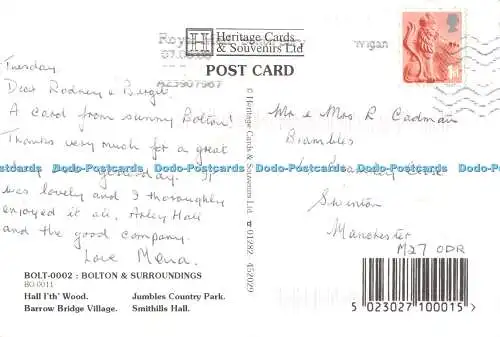 Heritage Cards
& Souvenirs Ltd
Royal
07.08.08
A23907967
Wigan
1st
POST CARD
Tuesday
Dear Rodney & Birgit.
A card from sunny Bolton!
Thanks very much for a great
day yesterday. It
was lovely and I thoroughly
enjoyed it all, Arley Hall
and the good company.
Love Mena.
© Heritage Cards & Souvenirs Ltd. 01282 452029
Mr & Mrs R Cadman
Brambles
Swinton
Manchester
M27 0DR
Dodo-Postcards Dodo-Postcards Dodo-Postcards Dodo-Postcards Dodo-Postcards
BOLT-0002 : BOLTON & SURROUNDINGS
BO-0011
Hall I'th' Wood. Jumbles Country Park.
Barrow Bridge Village. Smithills Hall.
5 023027 100015 >